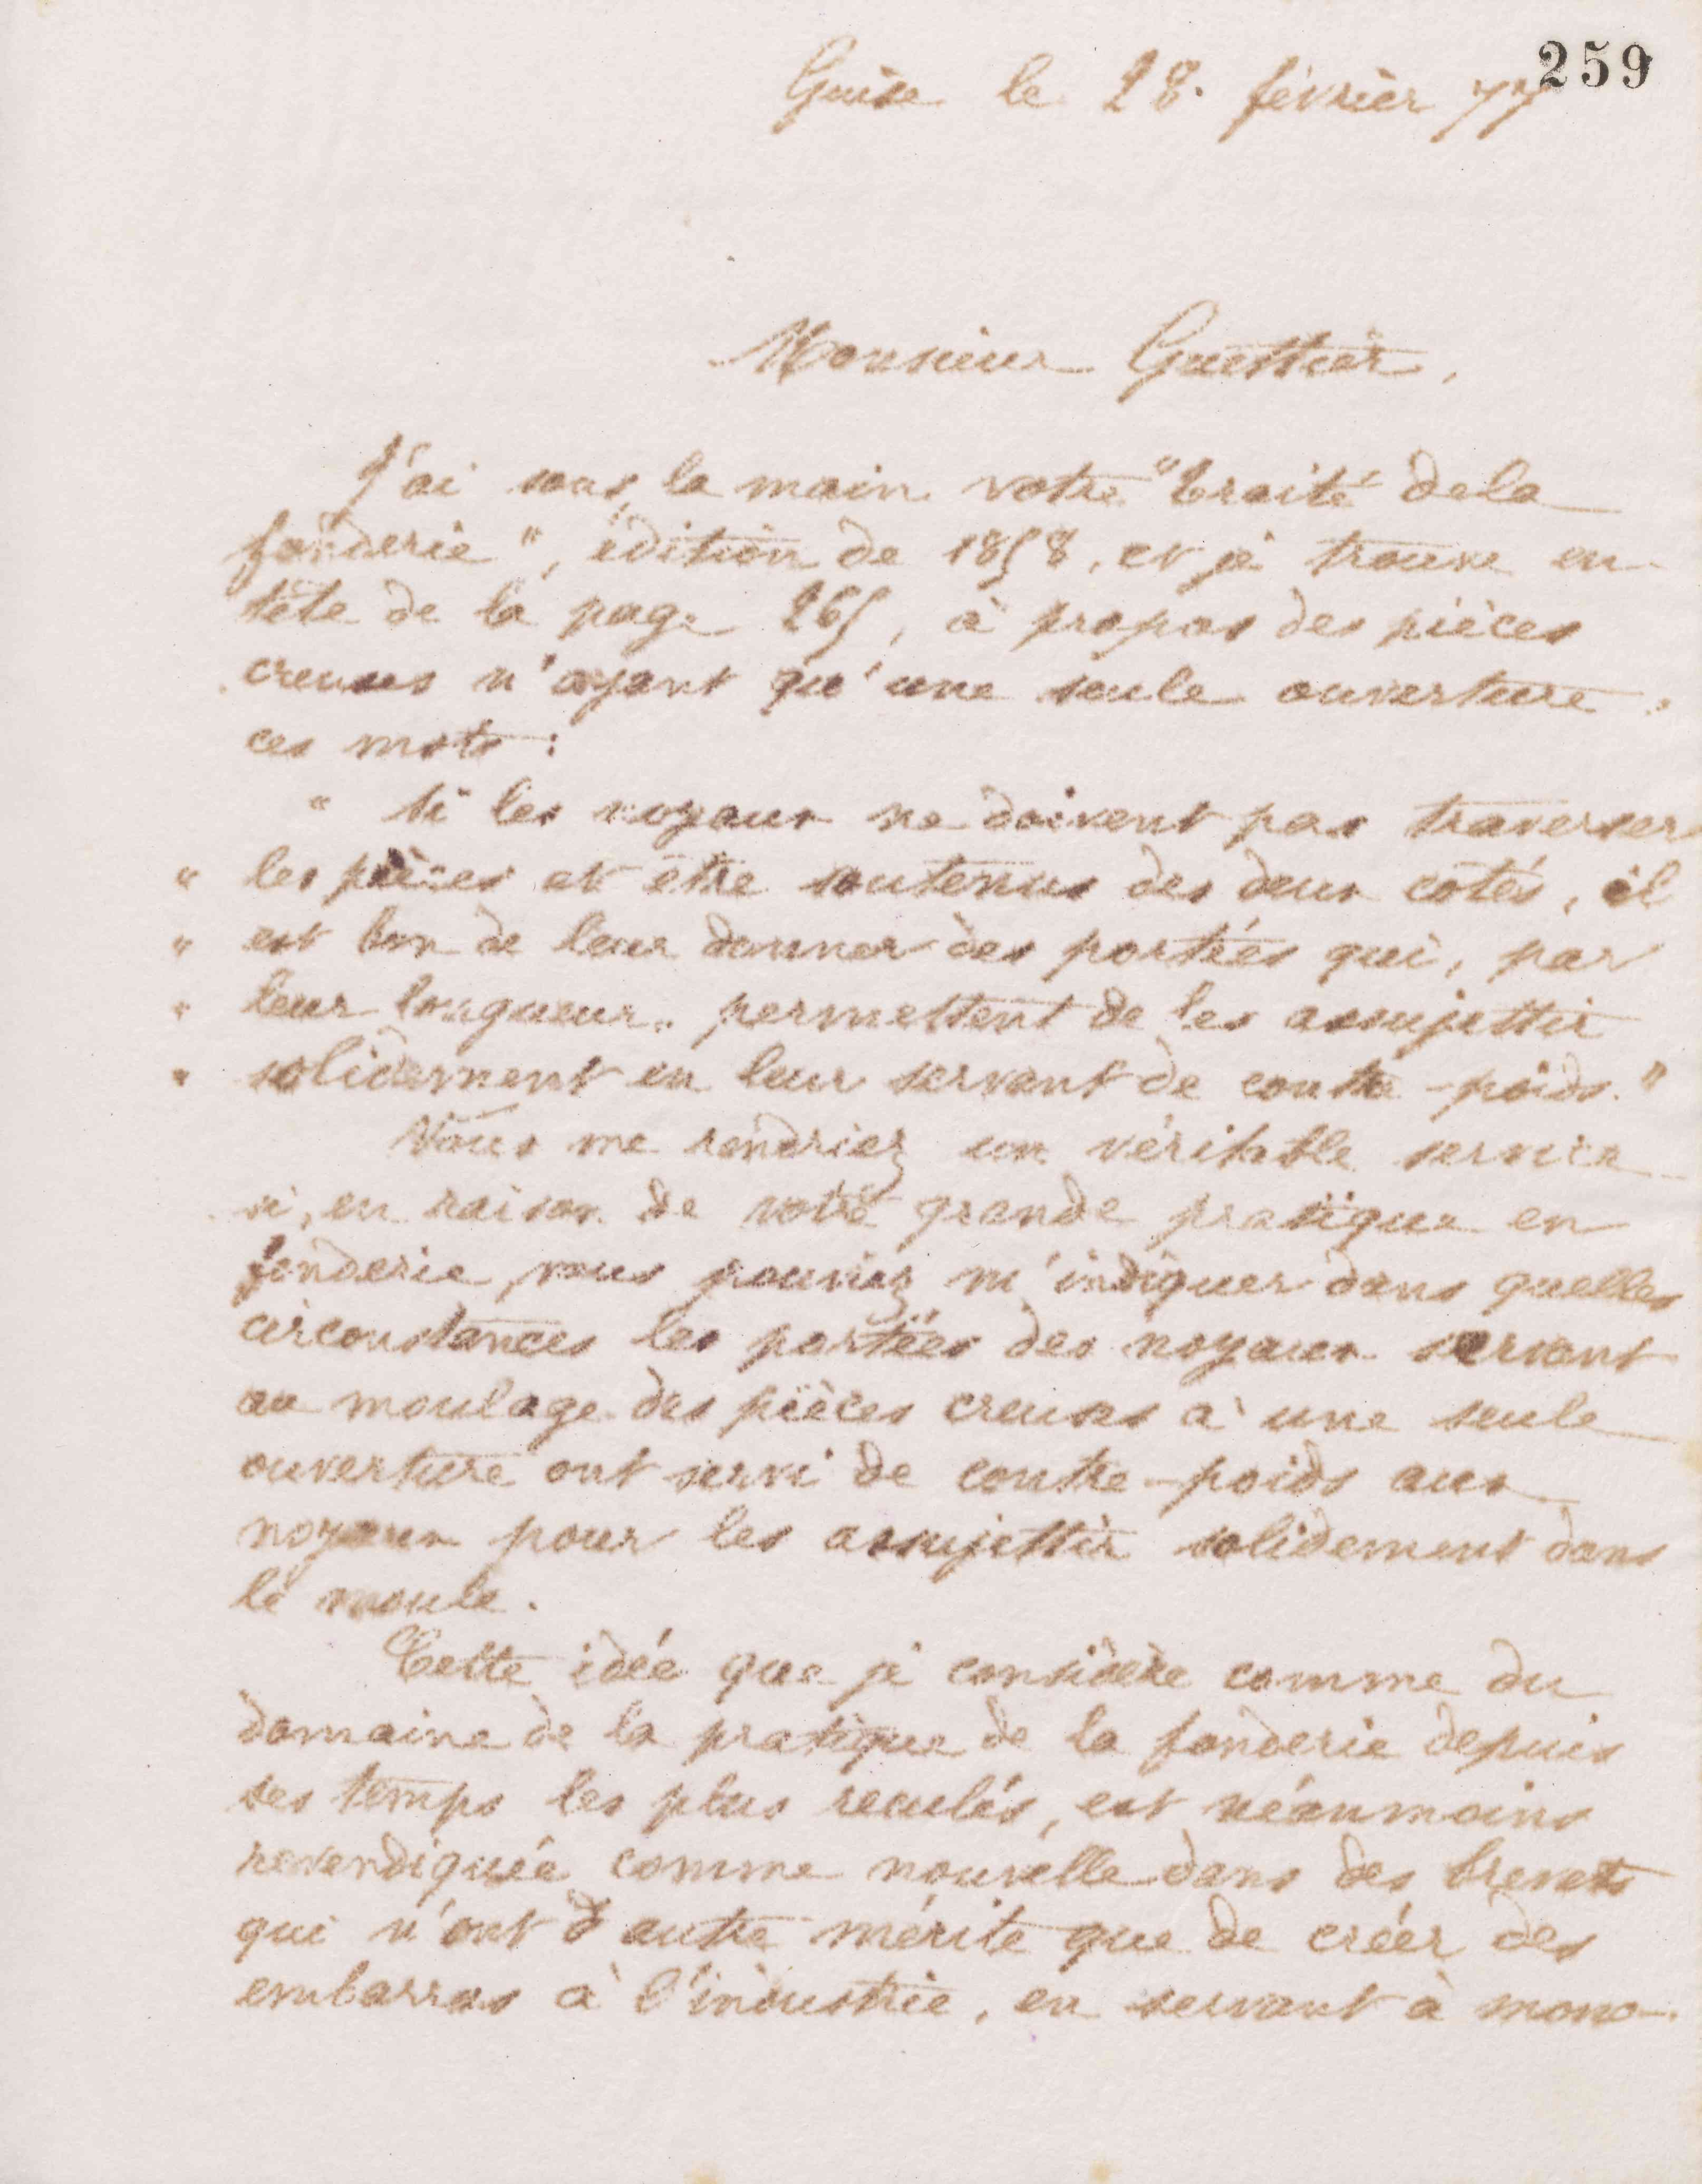 259
Guise le 28 février 77
Monsieur Guettier,
J'ai sous la main votre "traité de la
fonderie", édition de 1858, et je trouve en
tête de la page 265, à propos des pièces
creuses n'ayant qu'une seule ouverture,
ces mots :
" Si les noyaux ne doivent pas traverser
" les pièces et être soutenus des deux côtés, il
" est bon de leur donner des portées qui, par
" leur longueur, permettent de les assujettir
" solidement en leur servant de contre-poids."
Vous me rendriez un véritable service
si, en raison de votre grande pratique en
fonderie, vous pouviez m'indiquer dans quelles
circonstances les portées des noyaux servant
au moulage des pièces creuses à une seule
ouverture ont servi de contre-poids aux
noyaux pour les assujettir solidement dans
le moule.
Cette idée que je considère comme du
domaine de la pratique de la fonderie depuis
ses temps les plus reculés, est néanmoins
revendiquée comme nouvelle dans des brevets
qui n'ont d'autre mérite que de créer des
embarras à l'industrie, en servant à mono-